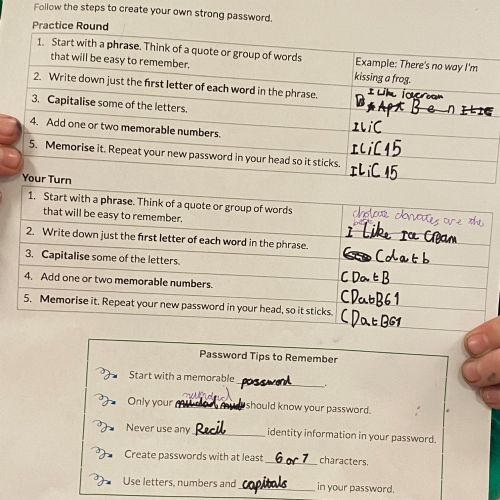 Follow the steps to create your own strong password.
Practice Round
1. Start with a phrase. Think of a quote or group of words
that will be easy to remember.
Example: There's no way I'm
kissing a frog.
2. Write down just the first letter of each word in the phrase.
I Like icecream
3. Capitalise some of the letters.
ILiC
4. Add one or two memorable numbers.
ILiC15
5. Memorise it. Repeat your new password in your head so it sticks.
ILiC15
Your Turn
1. Start with a phrase. Think of a quote or group of words
that will be easy to remember.
donates are the
I Like Ice CReam
2. Write down just the first letter of each word in the phrase.
Cdatb
3. Capitalise some of the letters.
CDatB
4. Add one or two memorable numbers.
CDatB61
5. Memorise it. Repeat your new password in your head, so it sticks.
CDatB61
Password Tips to Remember
Start with a memorable password.
Only your should know your password.
Never use any Recil identity information in your password.
Create passwords with at least 6 or 7 characters.
Use letters, numbers and capitals in your password.